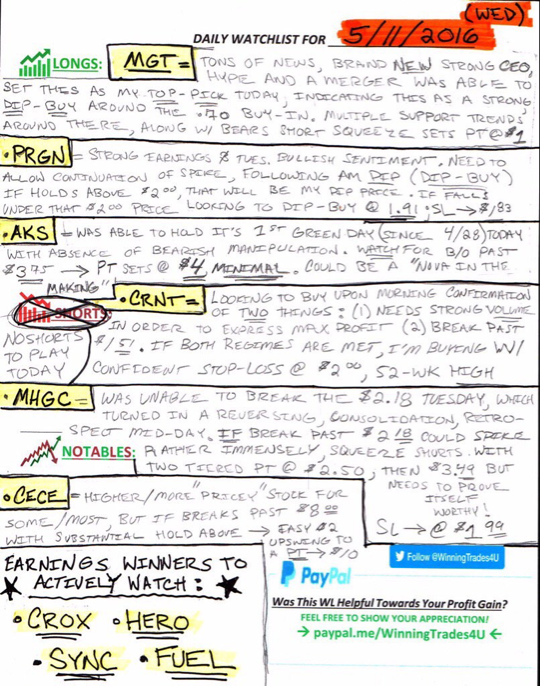 (WED)
DAILY WATCHLIST FOR 5/11/2016
LONGS: MGT = TONS OF NEWS, BRAND NEW STRONG CEO,
HYPE AND A MERGER WAS ABLE TO
SET THIS AS MY TOP-PICK TODAY, INDICATING THIS AS A STRONG
DIP-BUY AROUND THE .70 BUY-IN. MULTIPLE SUPPORT TRENDS
AROUND THERE, ALONG W/ BEARS SHORT SQUEEZE SETS PT @ $1
•PRGN = STRONG EARNINGS $ TUES. BULLISH SENTIMENT. NEED TO
ALLOW CONTINUATION OF SPIKE, FOLLOWING AM DIP (DIP-BUY)
IF HOLDS ABOVE $2.00, THAT WILL BE MY DIP PRICE. IF FALLS
UNDER THAT $2.00 PRICE LOOKING TO DIP-BUY @ 1.91; SL → $1.83
•AKS = WAS ABLE TO HOLD IT'S 1ST GREEN DAY (SINCE 4/28) TODAY
WITH ABSENCE OF BEARISH MANIPULATION. WATCH FOR B/O PAST
$3.75 → PT SETS @ $4 MINIMAL. COULD BE A "NOVA IN THE
MAKING"
SHORTS:
NO SHORTS
TO PLAY
TODAY
•CRNT = LOOKING TO BUY UPON MORNING CONFIRMATION
OF TWO THINGS: (1) NEEDS STRONG VOLUME
IN ORDER TO EXPRESS MAX PROFIT (2) BREAK PAST
$1.51. IF BOTH REGIMES ARE MET, I'M BUYING W/
CONFIDENT STOP-LOSS @ $2.00, 52-WK HIGH
•MHGC = WAS UNABLE TO BREAK THE $2.18 TUESDAY, WHICH
TURNED IN A REVERSING, CONSOLIDATION, RETRO-
SPECT MID-DAY. IF BREAK PAST $2.18 COULD SPIKE
NOTABLES: RATHER IMMENSELY, SQUEEZE SHORTS. WITH
TWO TIERED PT @ $2.50, THEN $3.49 BUT
NEEDS TO PROVE
ITSELF
WORTHY!
SL → @ $1.99
•CECE = HIGHER/MORE "PRICEY" STOCK FOR
SOME/MOST, BUT IF BREAKS PAST $8.00
WITH SUBSTANTIAL HOLD ABOVE → EASY $2
UPSWING TO
A PT → $10
EARNINGS WINNERS TO
ACTIVELY WATCH:
•CROX •HERO
•SYNC •FUEL
Follow @WinningTrades4U
PayPal
Was This WL Helpful Towards Your Profit Gain?
FEEL FREE TO SHOW YOUR APPRECIATION!
→ paypal.me/WinningTrades4U ←